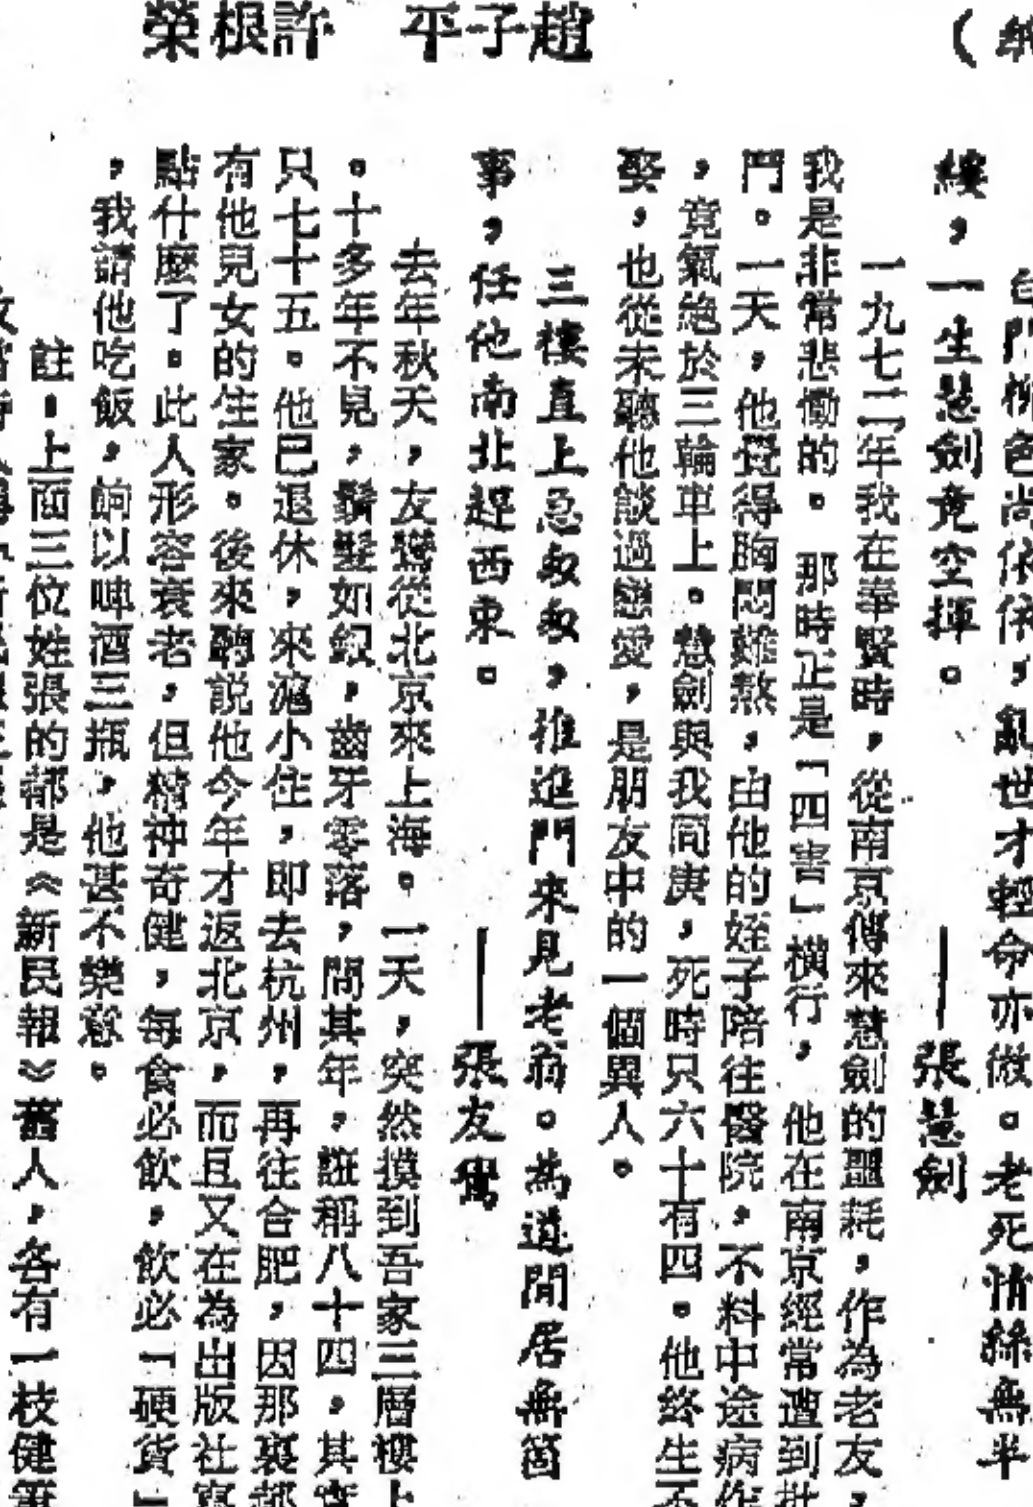 趙子平 許根榮
白門柳色尚依依，亂世才輕命亦微。老死情絲無半
縷，一生慧劍竟空揮。 ——張慧劍
一九七二年我在奉賢時，從南京傳來慧劍的噩耗，作為老友，
我是非常悲慟的。那時正是「四害」橫行，他在南京經常遭到批
鬥。一天，他覺得胸悶難熬，由他的姪子陪往醫院，不料中途病作
，竟氣絕於三輪車上。慧劍與我同庚，死時只六十有四。他終生不
娶，也從未聽他談過戀愛，是朋友中的一個異人。
三樓直上忽匆匆，推進門來見老翁。為道閒居無箇
事，任他南北趕西東。 ——張友鸞
去年秋天，友鸞從北京來上海。一天，突然摸到吾家三層樓上
。十多年不見，鬚髮如銀，齒牙零落，問其年，誑稱八十四，其實
只七十五。他已退休，來滬小住，即去杭州，再往合肥，因那裏都
有他兒女的住家。後來聽說他今年才返北京，而且又在為出版社寫
點什麼了。此人形容衰老，但精神奇健，每食必飲，飲必「硬貨」
，我請他吃飯，餉以啤酒三瓶，他甚不樂意。
註：上面三位姓張的都是《新民報》舊人，各有一枝健筆